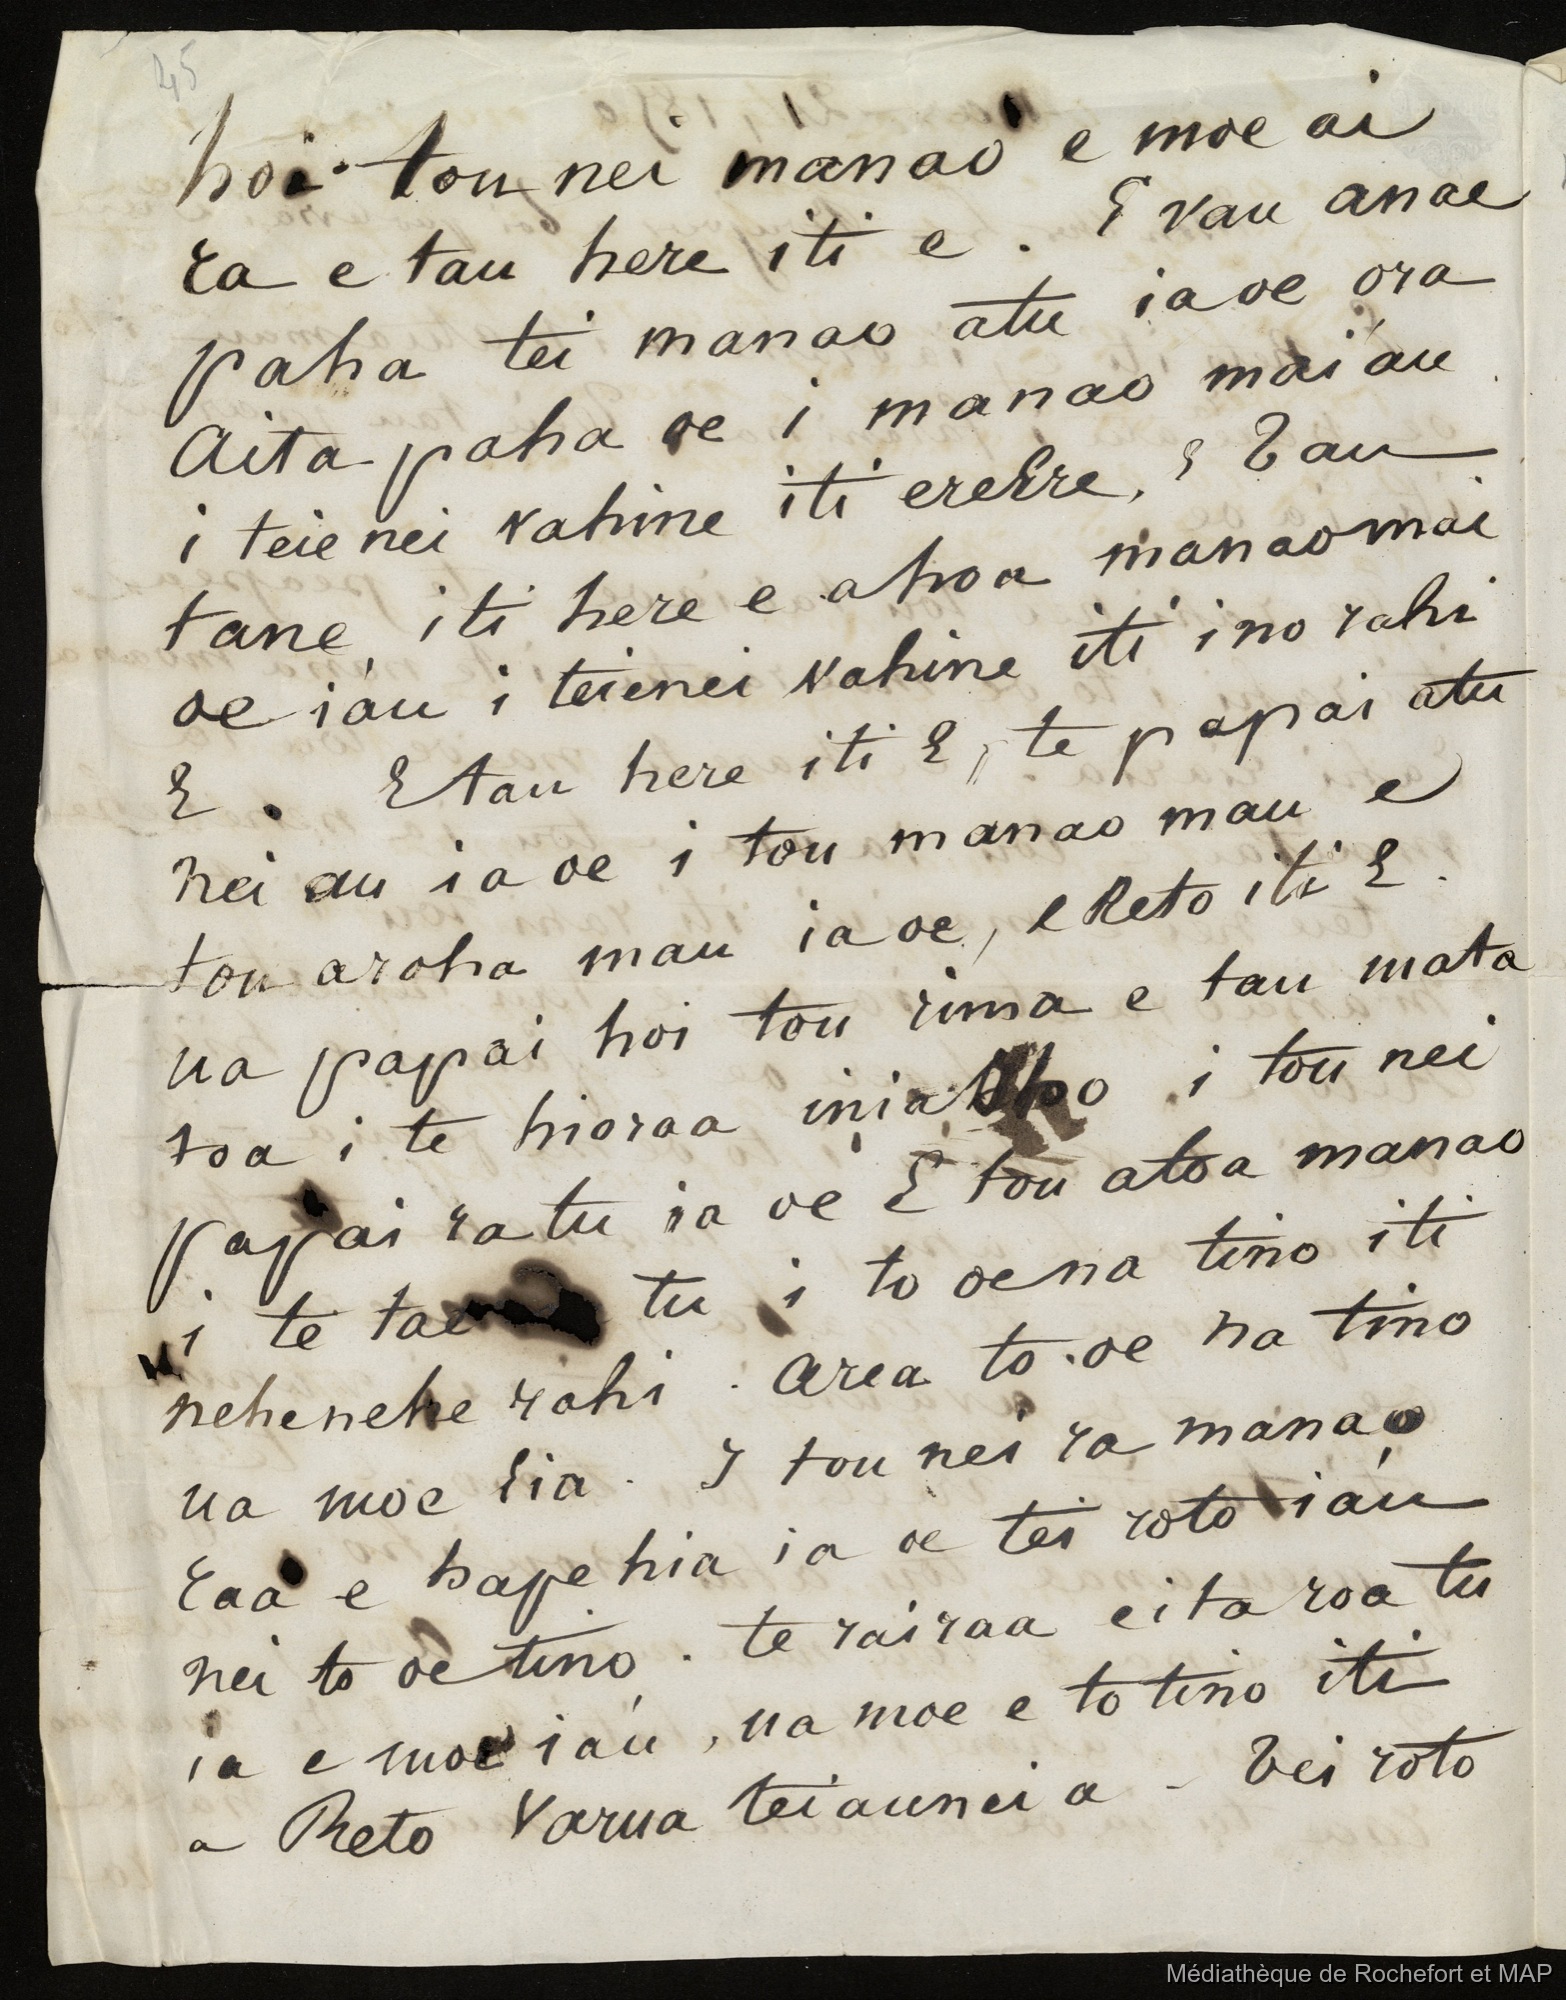 45
hoi tou nei manao e moe ai
ra e tau here iti e. E vau anae
paha tei manao atu ia oe ora
Aita paha oe i manao mai iau
i teie nei vahine iti ereere, E Tau
tane, iti here e ahoa manao mai
oe iau i teienei vahine iti ino rahi
E. E tau here iti E, te papai atu
nei au ia oe i tou manao mau e
tou aroha mau ia oe, e Reto iti E.
ua papai hoi tou rima e tau mata
toa i te hioraa inia i tou nei
papai ra tu ia oe E tou atoa manao
i te tae tu i to oe na tino iti
nehenehe rahi. Area to oe na tino
ua moe Eia. I tou nei ra manao
raa e hape hia ia oe tei roto iau
nei to oe tino. te rairaa eita roa tu
ia e moe iau, ua moe e to tino iti
a Reto Varua teiaunei a - Tei roto
Médiathèque de Rochefort et MAP